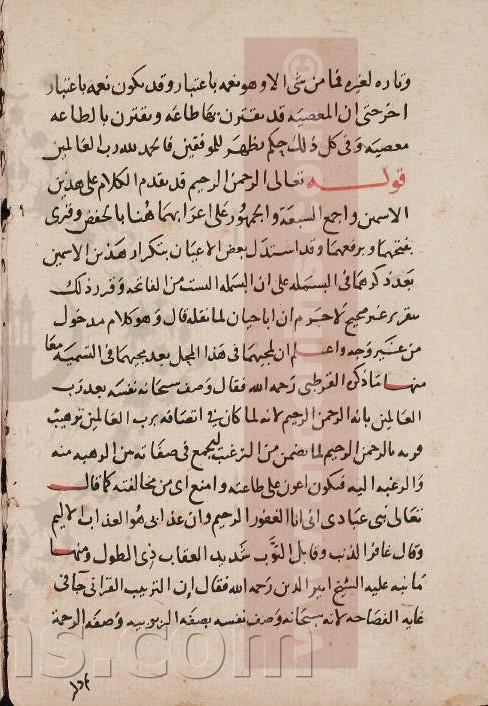 وتارة لغيره فما من شى الا وهو نعمه باعتبار وقد يكون نعمه باعتبار
اخر حتى ان المعصيه قد تقترن بها طاعه وتقترن بالطاعه
معصيه وفى كل ذلك حكم تظهر للموفقين فالحمد لله رب العالمين
قوله تعالى الرحمن الرحيم قد تقدم الكلام على هذين
الاسمين واجمع السبعه والجمهور على اعرابهما هنا بالخفض وقرى
بفتحهما وبرفعهما وقد استدل بعض الاعيان بتكرار هذين الاسمين
بعد ذكرهما فى البسمله على ان البسمله ليست من الفاتحه وقرر ذلك
تقرير غير صحيح لا جرم ان اباحيان لما نقله قال وهو كلام مدخول
من غير وجه واعلم ان لمجيهما فى هذا المحل بعد مجيهما فى التسمية معا
منها ما ذكره القرطبى رحمه الله فقال وصف سبحانه نفسه بعد رب
العالمين بانه الرحمن الرحيم لانه لما كان فى اتصافه برب العالمين ترهيب
قرنه بالرحمن الرحيم لما تضمن من الترغيب ليجمع فى صفاته بين الرهبه منه
والرغبه اليه فيكون اعون على طاعته وامنع اى من مخالفته كما قال
تعالى نبى عبادى انى انا الغفور الرحيم وان عذابى هو العذاب الاليم
وقال غافر الذنب وقابل التوب شديد العقاب ذى الطول ومنها
ما نبه عليه الشيخ اثير الدين رحمه الله فقال ان الترتيب القرانى جا فى
غايه الفصاحه لانه سبحانه وصف نفسه بصفه الربوبيه وصفه الرحمة
ns.com